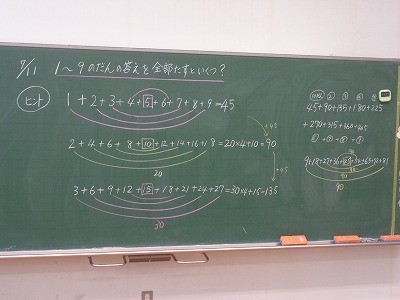 7/11 1~9のだんの答えを全部たすといくつ?
ヒント
1+2+3+4+5+6+7+8+9=45
2+4+6+8+10+12+14+16+18=20×4+10=90
20
3+6+9+12+15+18+21+24+27=30×4+15=135
30
+45
+45
45+90+135+180+225
+270+315+360+405
9+18+27+36+45+54+63+72+81
90
90